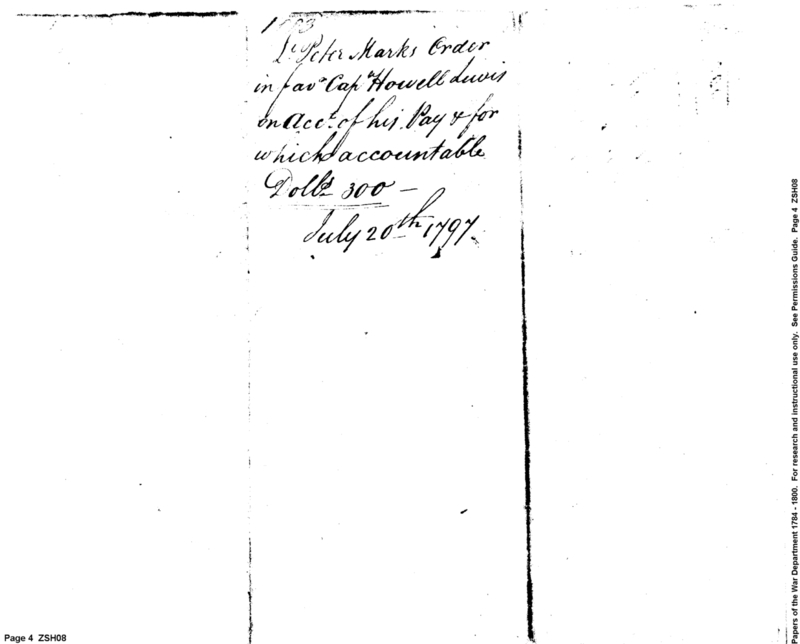 Lt. Peter Marks Order
in favr. Capn. Howell Lewis
on Acct. of his Pay & for
which accountable
Dolls. 300 —
July 20th, 1797.
Papers of the War Department 1784 - 1800. For research and instructional use only. See Permissions Guide. Page 4 ZSH08
Page 4 ZSH08